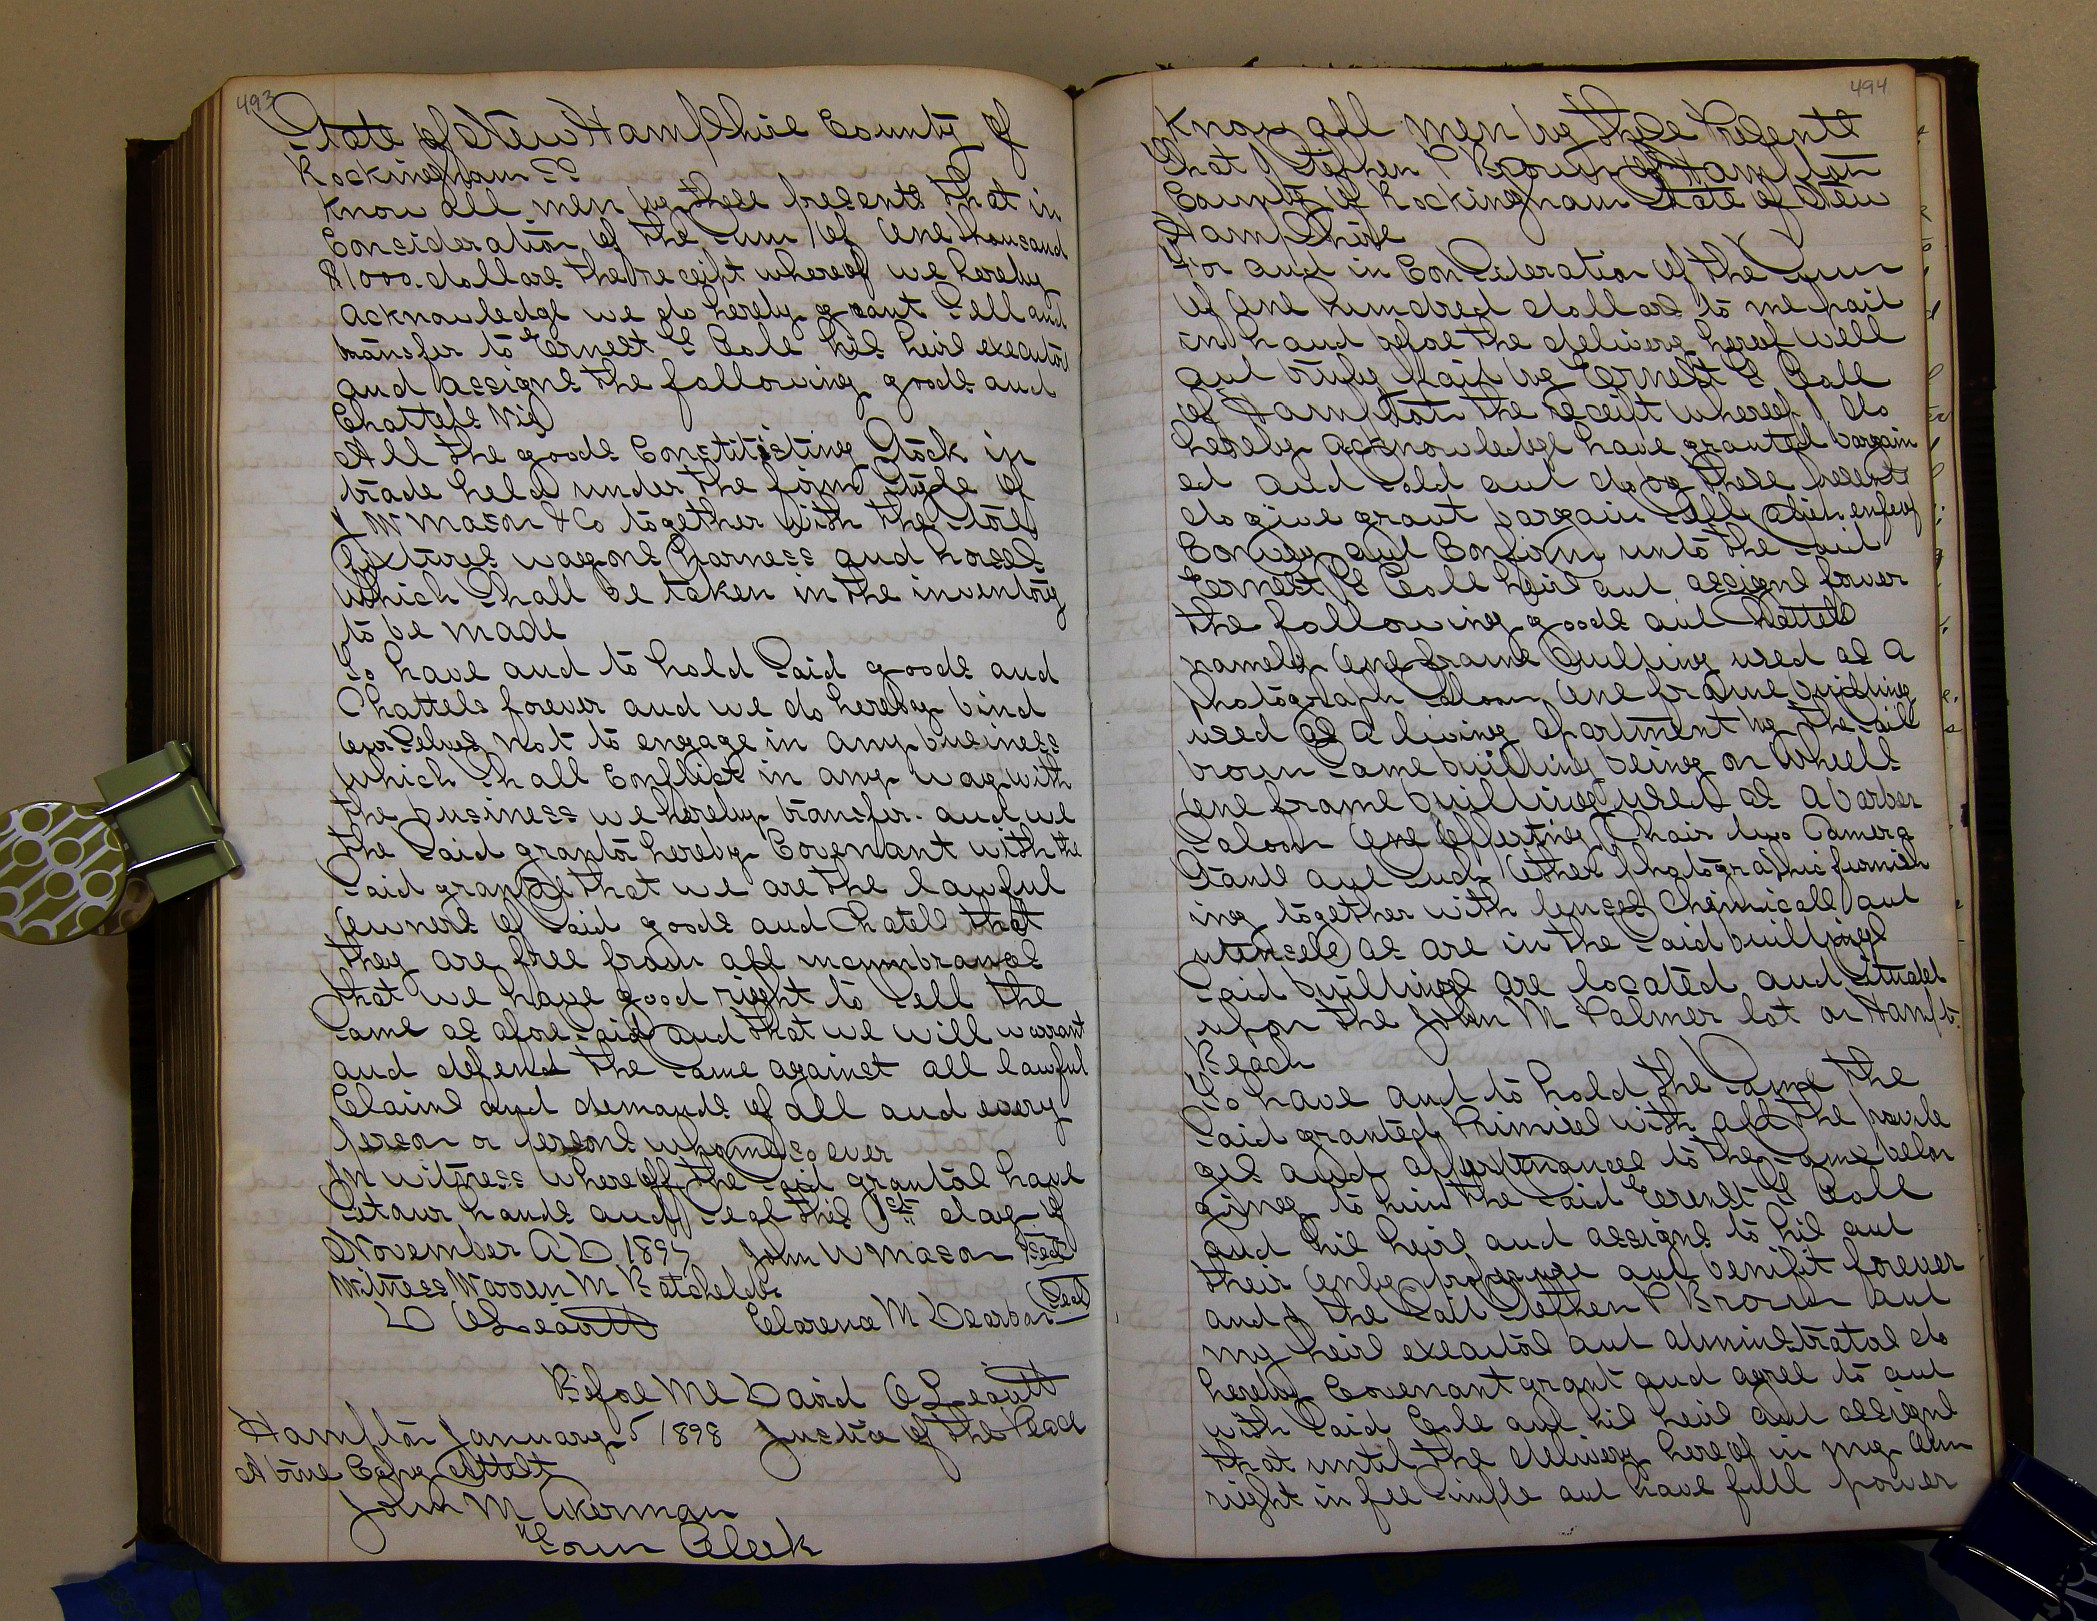 493
State of New Hampshire County of
Rockingham SS
Know all men by these presents that in
Consideration of the Sum of One thousand
$1000. dollars the receipt whereof we hereby
acknowledge we do hereby grant Sell and
transfer to Ernest G Cole his heirs executors
and assigns the following goods and
Chattels Viz
All the goods Constitisting Stock in
trade held under the firm Style of
J W Mason & Co together with the Store
fixtures wagons harness and horses
which Shall be taken in the inventory
to be made
To have and to hold Said goods and
Chattels forever and we do hereby bind
Ourselves not to engage in any business
which Shall Conflict in any way with
the business we hereby transfer. and we
the Said grantors hereby Covenant with the
Said grantee that we are the lawful
Owners of Said goods and Chatels that
they are free from all incumbrances
that we have good right to Sell the
Same as afore Said and that we will warrant
and defend the Same against all lawful
Claims and demands of all and every
person or persons whomesoever
In witness whereoff the Said grantors have
Set our hands and Seal this 1st day of
November A D 1897 John W Mason Seal
Witness Warren M Batchelder
D O Leavitt Clarence M Dearborn Seal
Before Me David O Leavitt
Hampton January 5 1898 Justice of the Peace
A true Copy Attest
John M Akerman
Town Clerk
494
Know all men by these Presents
that I Stephen P Brown of Hampton
County of Rockingham State of New
Hampshire
For and in Consideration of the Sum
of One hundred dollars to me paid
in hand before the delivery hereof well
and truly paid by Ernest G Cole
of Hampton the receipt whereof I do
hereby acknowledge have granted bargain
ed and Sold and do by these presents
do give grant bargain Sell alien enfeof
Convey and Confirm unto the Said
Ernest G Cole heirs and assigns forever
the following goods and Chattels
namely One frame Building used as a
photograph Saloon One frame building
used as a living apartment by the Said
brown Same building being on Wheels
One frame building used as a barber
Saloon One Chair two Camera
Stands and Such Other Photographic furnish
ing together with lenses Chemicals and
utensels as are in the Said buildings
Said buildings are located and Situated
upon the John M Palmer lot on Hampt.
Beach
To have and to hold the Same the
Said granted Primises with all the privile
ges and appurtinances to the Same belon
ging to him the Said Ernest G Cole
and his heirs and assigns to his and
their Only and benifit forever
and I the Said Stephen P Brown and
my heirs executors and administrators do
hereby Covenant grant and agree to and
with Said Cole and his heirs and assigns
that until the delivery hereof in my Own
right in fee Simple and have full power